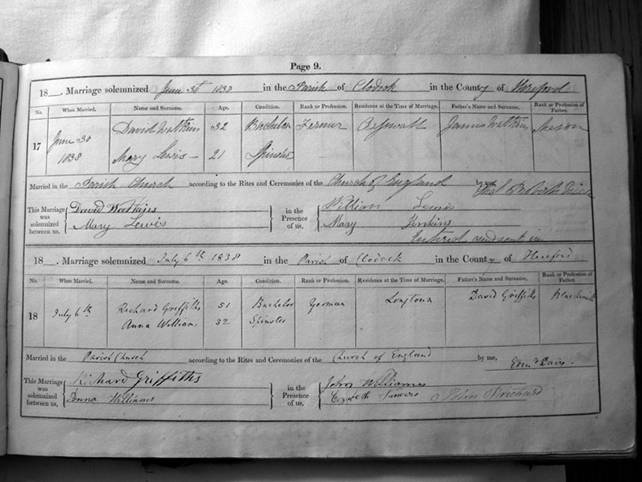 Page 9.
18 . Marriage solemnized June 30 1838 in the Parish of Clodock in the County of Hereford
No. When Married. Name and Surname. Age. Condition. Rank or Profession. Residence at the Time of Marriage. Father's Name and Surname. Rank or Profession of Father.
17 June 30 1838 David Watkins 32 Bachelor Farmer James Watkins Mason
Mary Lewis 21 Spinster
Married in the Parish Church according to the Rites and Ceremonies of the Church of England by me,
This Marriage was solemnized between us, David Watkins Mary Lewis in the Presence of us, William Mary Jenkins
18 . Marriage solemnized July 6th 1838 in the Parish of Clodock in the County of Hereford
No. When Married. Name and Surname. Age. Condition. Rank or Profession. Residence at the Time of Marriage. Father's Name and Surname. Rank or Profession of Father.
18 July 6th Richard Griffiths 51 Bachelor Yeoman Longtown David Griffiths
Anna William 32 Spinster
Married in the Parish Church according to the Rites and Ceremonies of the Church of England by me, Edmd Davis
This Marriage was solemnized between us, Richard Griffiths Williams in the Presence of us, John Williams John Prichard